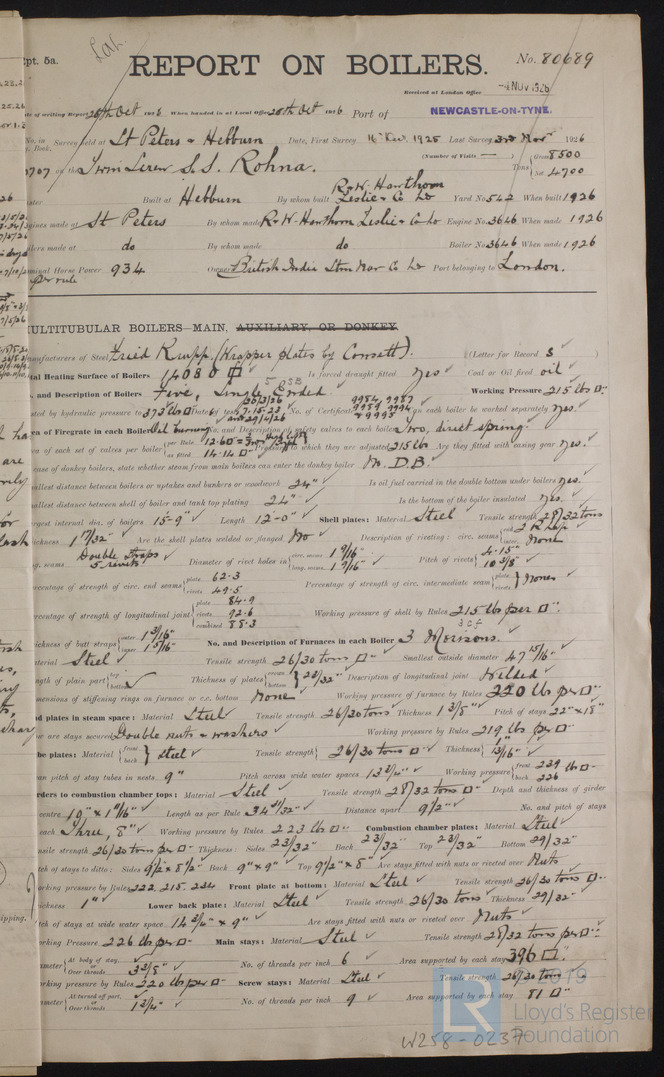 pt. 5a.
REPORT ON BOILERS.
No. 80689
Received at London Office
-4 NOV 1926
Date of writing Report 28th Oct 1926 When handed in at Local Office 28th Oct 1926 Port of NEWCASTLE-ON-TYNE.
No. in Book. Survey held at St Peters & Hebburn Date, First Survey 1925 Last Survey 1926
(Number of Visits — )
on the Twin Screw S.S. Rohna.
Tons Gross 8500 Net 4700
Built at Hebburn By whom built R & W. Hawthorn Leslie & Co Ld Yard No 542 When built 1926
Engines made at St Peters By whom made R & W. Hawthorn Leslie & Co Ld Engine No. 3646 When made 1926
Boilers made at do By whom made do Boiler No. 3646 When made 1926
Nominal Horse Power 934 per rule Owners British India Stm Nav Co Ld Port belonging to London.
MULTITUBULAR BOILERS—MAIN, AUXILIARY, OR DONKEY.
Manufacturers of Steel Fried Krupp. (Wrapper plates by Consett). (Letter for Record S )
Total Heating Surface of Boilers 14080 □ Is forced draught fitted yes Coal or Oil fired oil
No. and Description of Boilers Five, Single Ended Working Pressure 215 lbs □
Tested by hydraulic pressure to 373 lbs □ Date of test No. of Certificate each boiler be worked separately yes.
Area of Firegrate in each Boiler Oil burning No. and Description of safety valves to each boiler Two, direct spring.
Area of each set of valves per boiler per Rule 13.60 as fitted 14.14 □ Pressure to which they are adjusted 215 lb Are they fitted with easing gear yes.
In case of donkey boilers, state whether steam from main boilers can enter the donkey boiler No D.B.
Smallest distance between boilers or uptakes and bunkers or woodwork 24" Is oil fuel carried in the double bottom under boilers yes.
Smallest distance between shell of boiler and tank top plating 24" Is the bottom of the boiler insulated yes.
Largest internal dia. of boilers 15'-9" Length 12'-0" Shell plates: Material Steel Tensile strength 28/32 tons
Thickness 1 9/32" Are the shell plates welded or flanged No Description of riveting: circ. seams end 2 R Lap inter. None
long. seams Double Straps 5 rivets Diameter of rivet holes in circ. seams 1 9/16" long. seams 1 7/16" Pitch of rivets 4.15" 10 3/8"
Percentage of strength of circ. end seams plate 62.3 rivets 49.5 Percentage of strength of circ. intermediate seam plate rivets None
Percentage of strength of longitudinal joint plate 84.9 rivets 92.6 combined 88.3 Working pressure of shell by Rules 215 lbs per □
Thickness of butt straps outer 1 3/16" inner 1 5/16" No. and Description of Furnaces in each Boiler 3 Morisons.
Material Steel Tensile strength 26/30 tons □ Smallest outside diameter 47 15/16"
Length of plain part top bottom Thickness of plates crown bottom 23/32" Description of longitudinal joint Welded
Dimensions of stiffening rings on furnace or c.c. bottom None Working pressure of furnace by Rules 220 lbs per □
End plates in steam space: Material Steel Tensile strength 26/30 tons Thickness 1 3/8" Pitch of stays 22" × 18"
How are stays secured Double nuts & washers Working pressure by Rules 219 lbs per □
Tube plates: Material front back Steel Tensile strength 26/30 tons □ Thickness 1" 13/16"
Mean pitch of stay tubes in nests 9" Pitch across wide water spaces 13 3/4" Working pressure front 239 back 226 lbs □
Girders to combustion chamber tops: Material Steel Tensile strength 28/32 tons □ Depth and thickness of girder
at centre Length as per Rule 34 11/32" Distance apart 9 1/2" No. and pitch of stays
in each Three, 8" Working pressure by Rules 223 lbs □ Combustion chamber plates: Material Steel
Tensile strength 26/30 tons per □ Thickness: Sides 23/32" Back 23/32" Top 23/32" Bottom 29/32"
Pitch of stays to ditto: Sides 9 1/2" × 8 1/2" Back 9" × 9" Top 9 1/2" × 8" Are stays fitted with nuts or riveted over Nuts
Working pressure by Rules 222, 215, 234 Front plate at bottom: Material Steel Tensile strength 26/30 tons □
Thickness 1" Lower back plate: Material Steel Tensile strength 26/30 tons Thickness 29/32"
Pitch of stays at wide water space 14 3/4" × 9" Are stays fitted with nuts or riveted over Nuts
Working Pressure 226 lbs per □ Main stays: Material Steel Tensile strength 28/32 tons per □
Diameter At body of stay, or Over threads 3 3/8" No. of threads per inch 6 Area supported by each stay 396 □"
Working pressure by Rules 220 lbs per □ Screw stays: Material Steel Tensile strength 26/30 tons
Diameter At turned off part, or Over threads 1 3/4" No. of threads per inch 9 Area supported by each stay 81 □
© 2019
LR
Lloyd's Register
Foundation
W258-0237